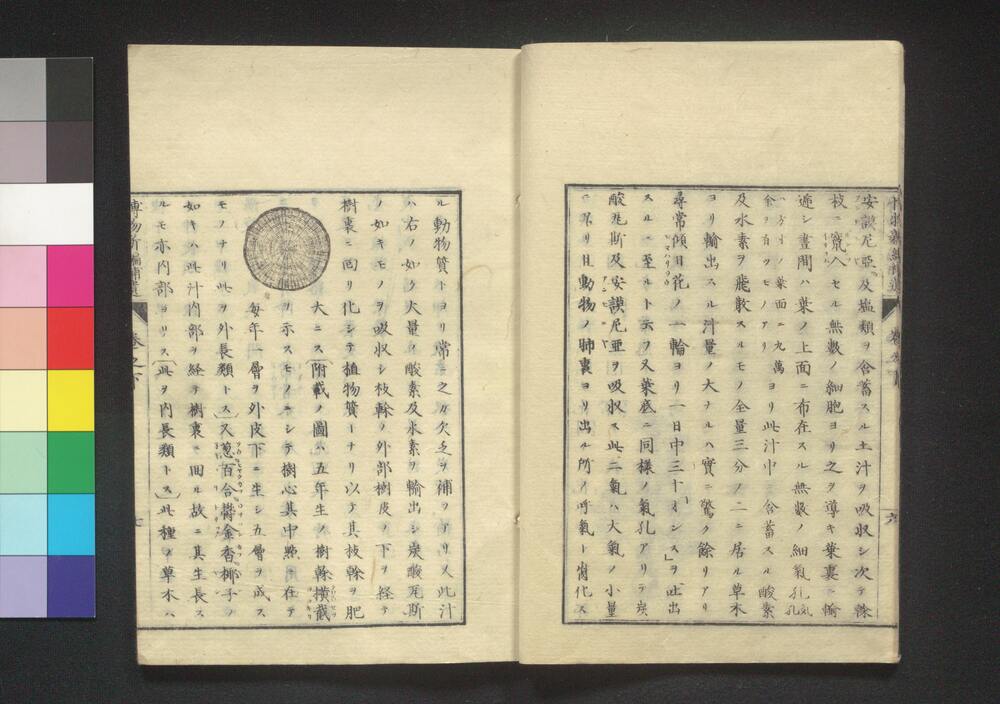 安謨尼亞及塩類ヲ含蓄スル土汁ヲ吸収シ次テ幹
枝ニ竄ヘセル無数ノ細胞ヨリ之ヲ導キ葉裏ニ輸
逓シ晝間ハ葉ノ上面ニ布在スル無数ノ細氣孔
ノ葉面ニ九萬ヨリ此汁中ニ含蓄スル酸素
及水素ヲ飛散スルモノ全量三分ノ二ニ居ル草木
ヨリ輸出スル汁量ノ大ナルハ實ニ驚ク餘リアリ
尋常傾日花ノ一輪ヨリ一日中三十「インス」ヲ吐出
スルニ至ルト云フ又葉底ニ同様ノ氣孔アリテ炭
酸瓦斯及安謨尼亜ヲ吸収ス此二氣ハ大氣ノ小量
ニ居リ且動物ノ肺裏ヨリ出ル所ノ呼氣ト腐化ス
六
ル動物質トヨリ常ニ之カ欠乏ヲ補フナリ又此汁
ハ右ノ如ク大量ノ酸素及水素ヲ輸出シ炭酸瓦斯
ノ如キモノヲ吸収シ枝幹ノ外部樹皮ノ下ヲ経テ
樹裏ニ回リ化シテ植物質トナリ以テ其枝幹ヲ肥
大ニス(附載ノ圖ハ五年生ノ樹幹横截
ヲ示スモノニシテ樹心其中點ニ在テ
毎年一層ヲ外皮下ニ生シ五層ヲ成ス
モノナリ此ヲ外長類トス)又葱百合欝金香椰子ノ
如キハ此汁内部ヲ経テ樹裏ニ回ル故ニ其生長ス
ルモ亦内部ヨリス(此ヲ内長類トス)此種ノ草木ハ
博物新編補遺 卷之下 七